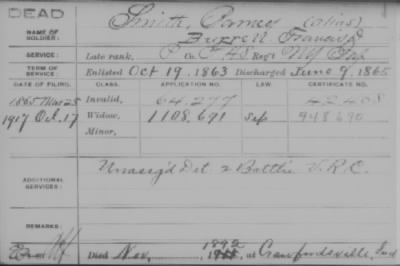 DEAD
NAME OF SOLDIER: Smith, James (alias)
Francis
SERVICE: Late rank, Co. Reg't Inf
TERM OF SERVICE: Enlisted Oct 19, 1863 Discharged June 9, 1865
DATE OF FILING. CLASS. APPLICATION NO. LAW. CERTIFICATE NO.
1865 Mar 25 Invalid, 64,277
1917 Oct. 17 Widow, 1108,691 948690
Minor,
ADDITIONAL SERVICES: Unassg'd Det 2 Battln V.R.C.
REMARKS:
Died Nov, 1892, at Crawfordsville, Ind